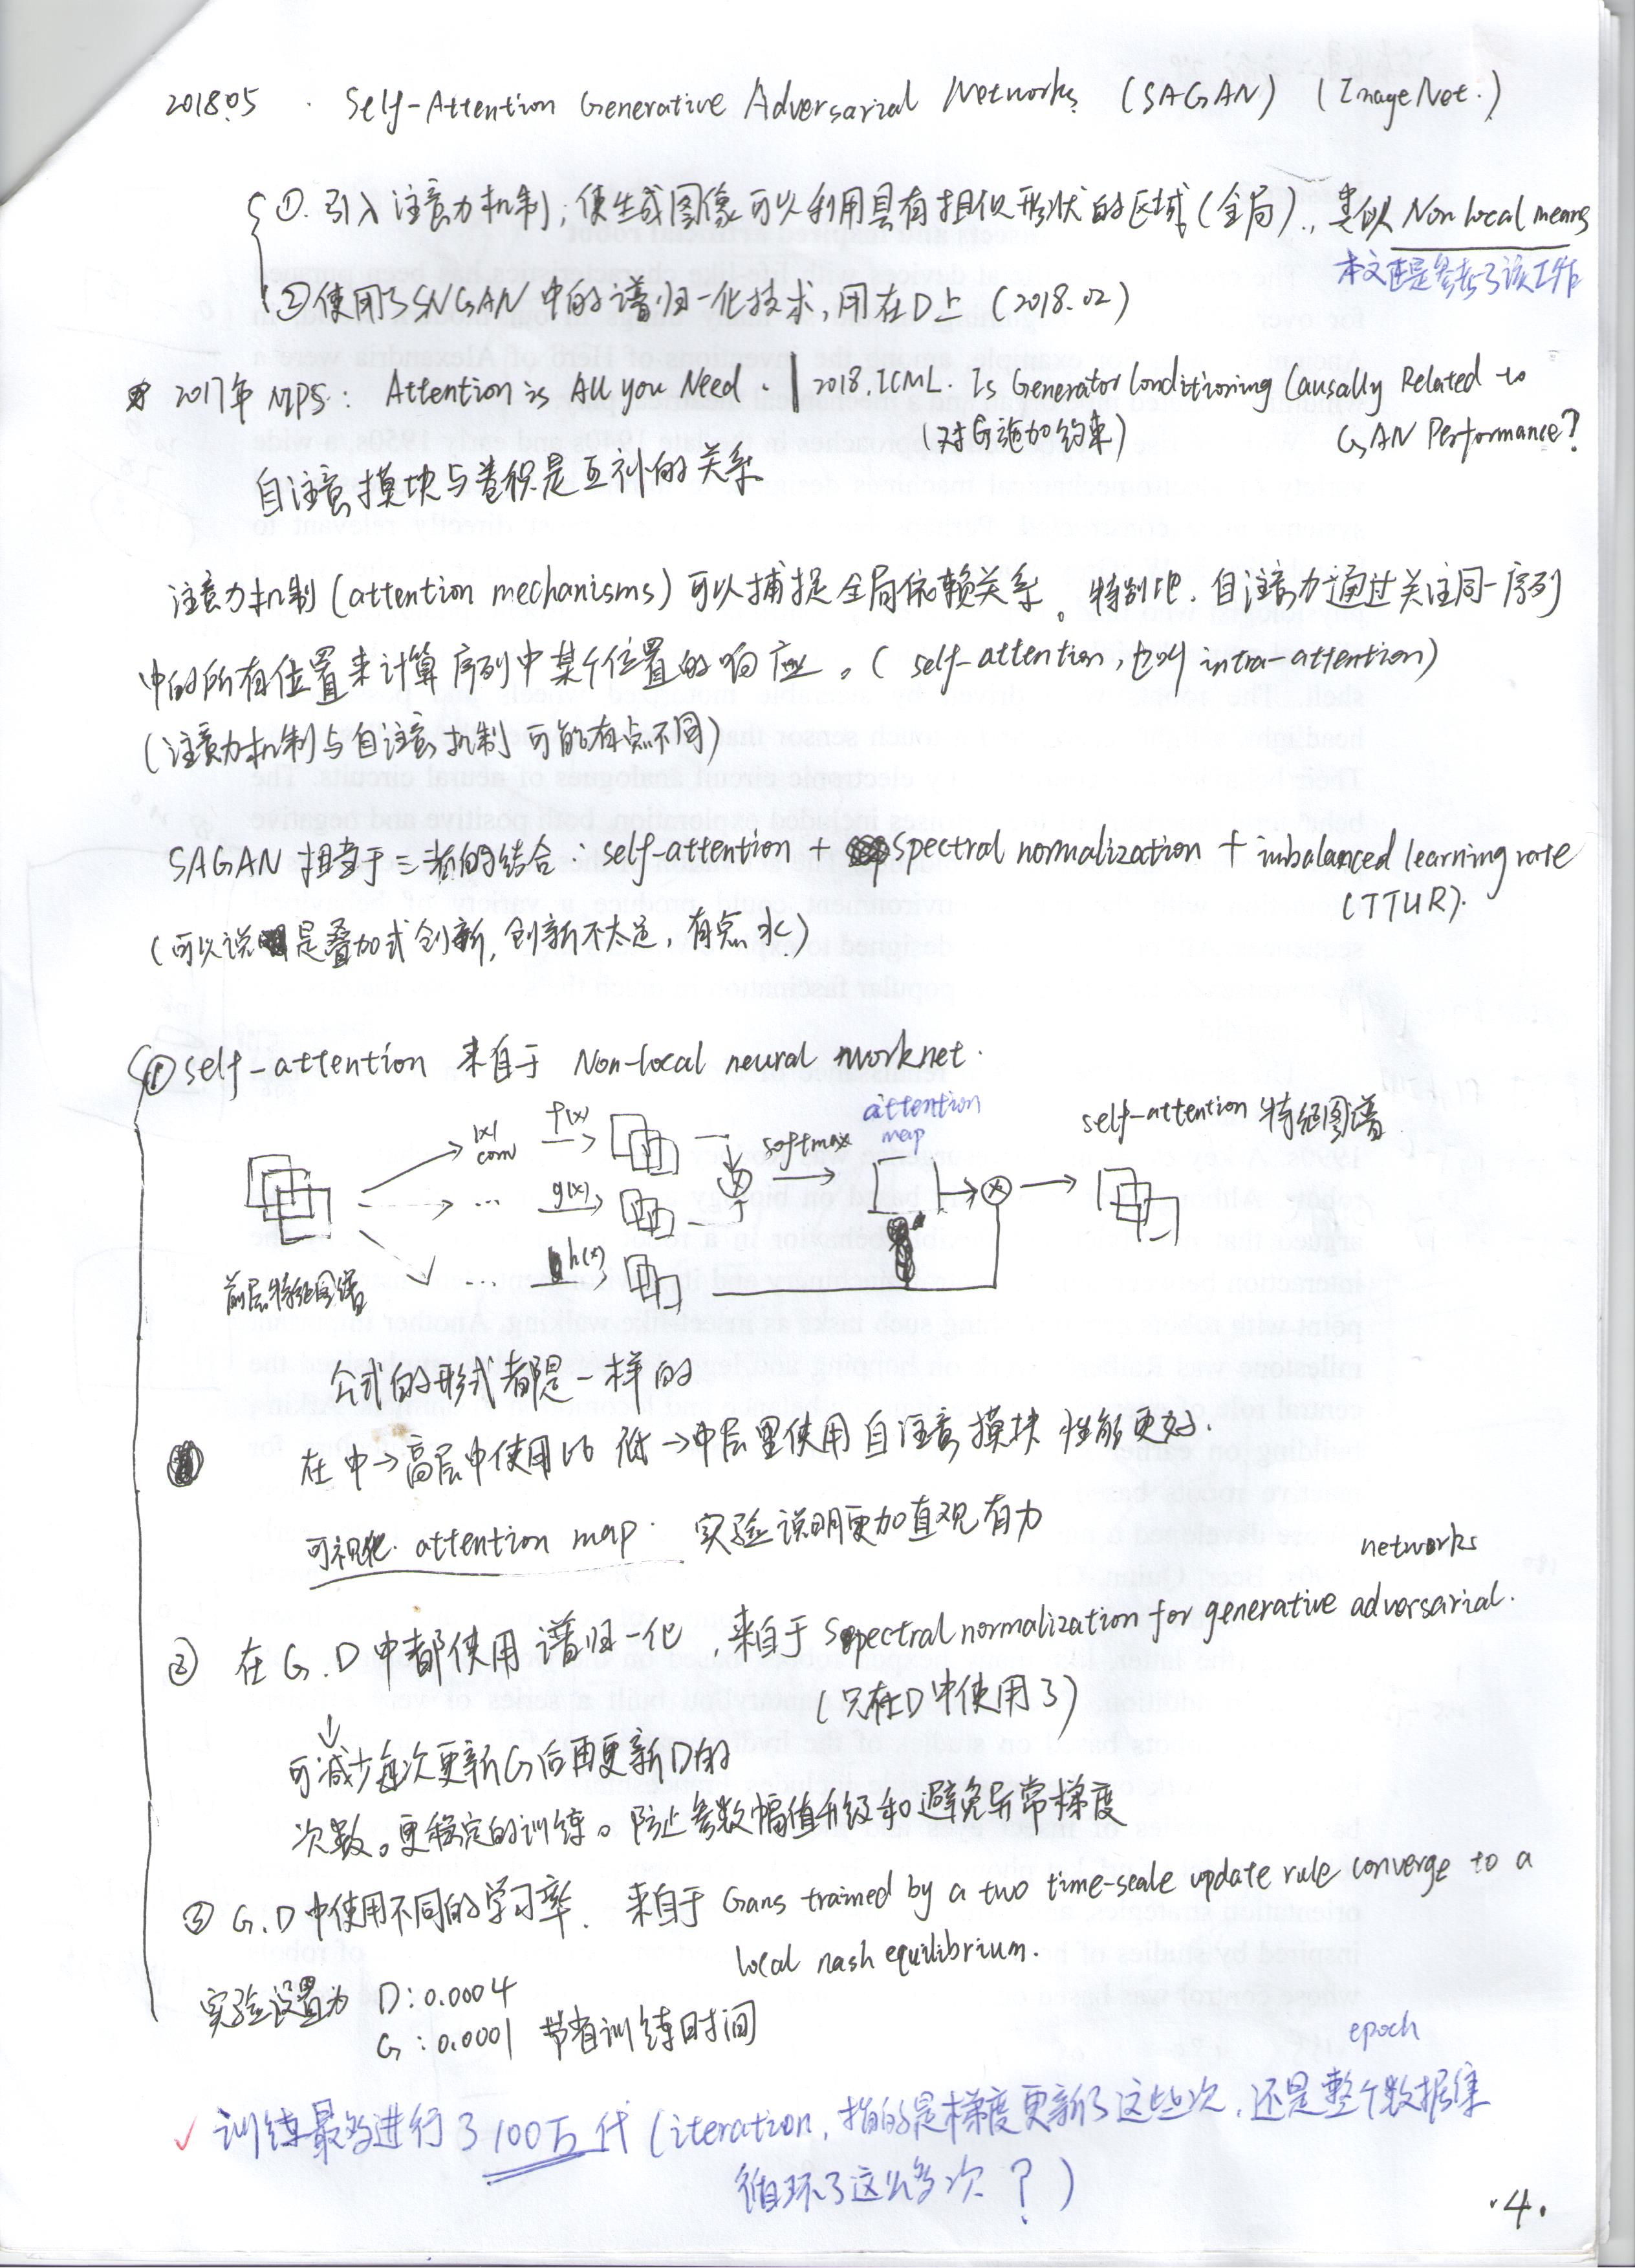 2018.05 . Self-Attention Generative Adversarial Networks (SAGAN) (ImageNet.)
①. 引入注意力机制, 使生成图像可以利用具有相似形状的区域(全局)., 类似 Non local means
本文也是参考了该工作
②使用了SNGAN 中的谱归一化技术, 用在D上 (2018.02)
2017年 NIPS: Attention is All you Need . | 2018. ICML. Is Generator Conditioning Causally Related to
(对G施加约束) GAN Performance?
自注意模块与卷积是互补的关系
注意力机制(attention mechanisms)可以捕捉全局依赖关系。特别地. 自注意力通过关注同一序列
中的所有位置来计算序列中某个位置的响应。( self-attention, 也叫 intra-attention)
(注意力机制与自注意机制可能有点不同)
SAGAN 相当于三者的结合: self-attention + Spectral normalization + imbalanced learning rate
(TTUR).
(可以说是叠加式创新, 创新不太足, 有点水)
① self-attention 来自于 Non-local neural worknet.
1x1 conv f(x) softmax attention map self-attention 特征图谱
... g(x)
... h(x)
前层特征图谱
公式的形式都是一样的
在中→高层中使用比 低→中层里使用自注意模块 性能更好.
可视化 attention map. 实验说明更加直观有力
networks
② 在 G.D 中都使用谱归一化, 来自于 Spectral normalization for generative adversarial.
(只在D中使用了)
↓
可减少每次更新G后再更新D的
次数。更稳定的训练。防止参数幅值升级和避免异常梯度
③ G.D 中使用不同的学习率. 来自于 Gans trained by a two time-scale update rule converge to a
local nash equilibrium.
实验设置为 D:0.0004
G:0.0001 节省训练时间
epoch
✓ 训练最多进行了100万代 (iteration, 指的是梯度更新了这些次, 还是整个数据集
循环了这么多次?)
.4.